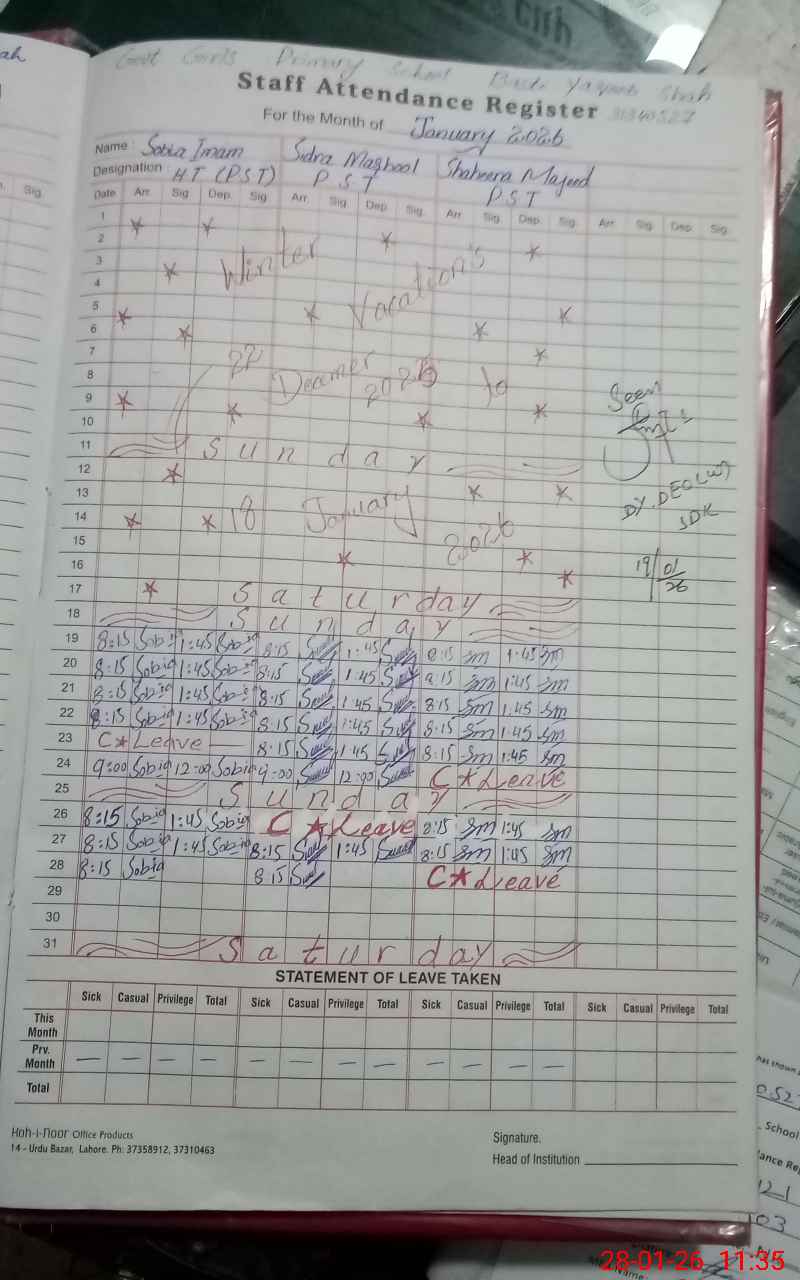 Govt Girls Primary School Basti Yaqoob Shah
Staff Attendance Register 31340527
For the Month of January 2026
Name : Sobia Imam Sidra Maqbool Shaheera Majeed
Designation : HT (PST) PST PST
Date Arr. Sig. Dep. Sig. Arr. Sig. Dep. Sig. Arr. Sig. Dep. Sig. Arr. Sig. Dep. Sig.
1
2
3 Winter
4 Vacation's
5
6
7 22
8 Deamer 2025 to
9 Seen
10
11 Sunday
12
13 DY.DEO(W)
14 18 January JDK
15 2026
16 19/01/26
17 Saturday
18 Sunday
19 8:15 Sobia 1:45 Sobia 8:15 1:45 8:15 Sm 1:45 Sm
20 8:15 Sobia 1:45 Sobia 8:15 1:45 8:15 Sm 1:45 Sm
21 8:15 Sobia 1:45 Sobia 8:15 1:45 8:15 Sm 1:45 Sm
22 8:15 Sobia 1:45 Sobia 8:15 1:45 8:15 Sm 1:45 Sm
23 C*Leave 8:15 1:45 8:15 Sm 1:45 Sm
24 9:00 Sobia 12:00 Sobia 9:00 12:00 C*Leave
25 Sunday
26 8:15 Sobia 1:45 Sobia C*Leave 8:15 Sm 1:45 Sm
27 8:15 Sobia 1:45 Sobia 8:15 1:45 8:15 Sm 1:45 Sm
28 8:15 Sobia 8:15 C*Leave
29
30
31 Saturday
STATEMENT OF LEAVE TAKEN
Sick Casual Privilege Total Sick Casual Privilege Total Sick Casual Privilege Total Sick Casual Privilege Total
This Month
Prv. Month — — — — — — — — — — — —
Total
Koh-i-Noor Office Products
14 - Urdu Bazar, Lahore. Ph: 37358912, 37310463
Signature.
Head of Institution
28-01-26 11:35